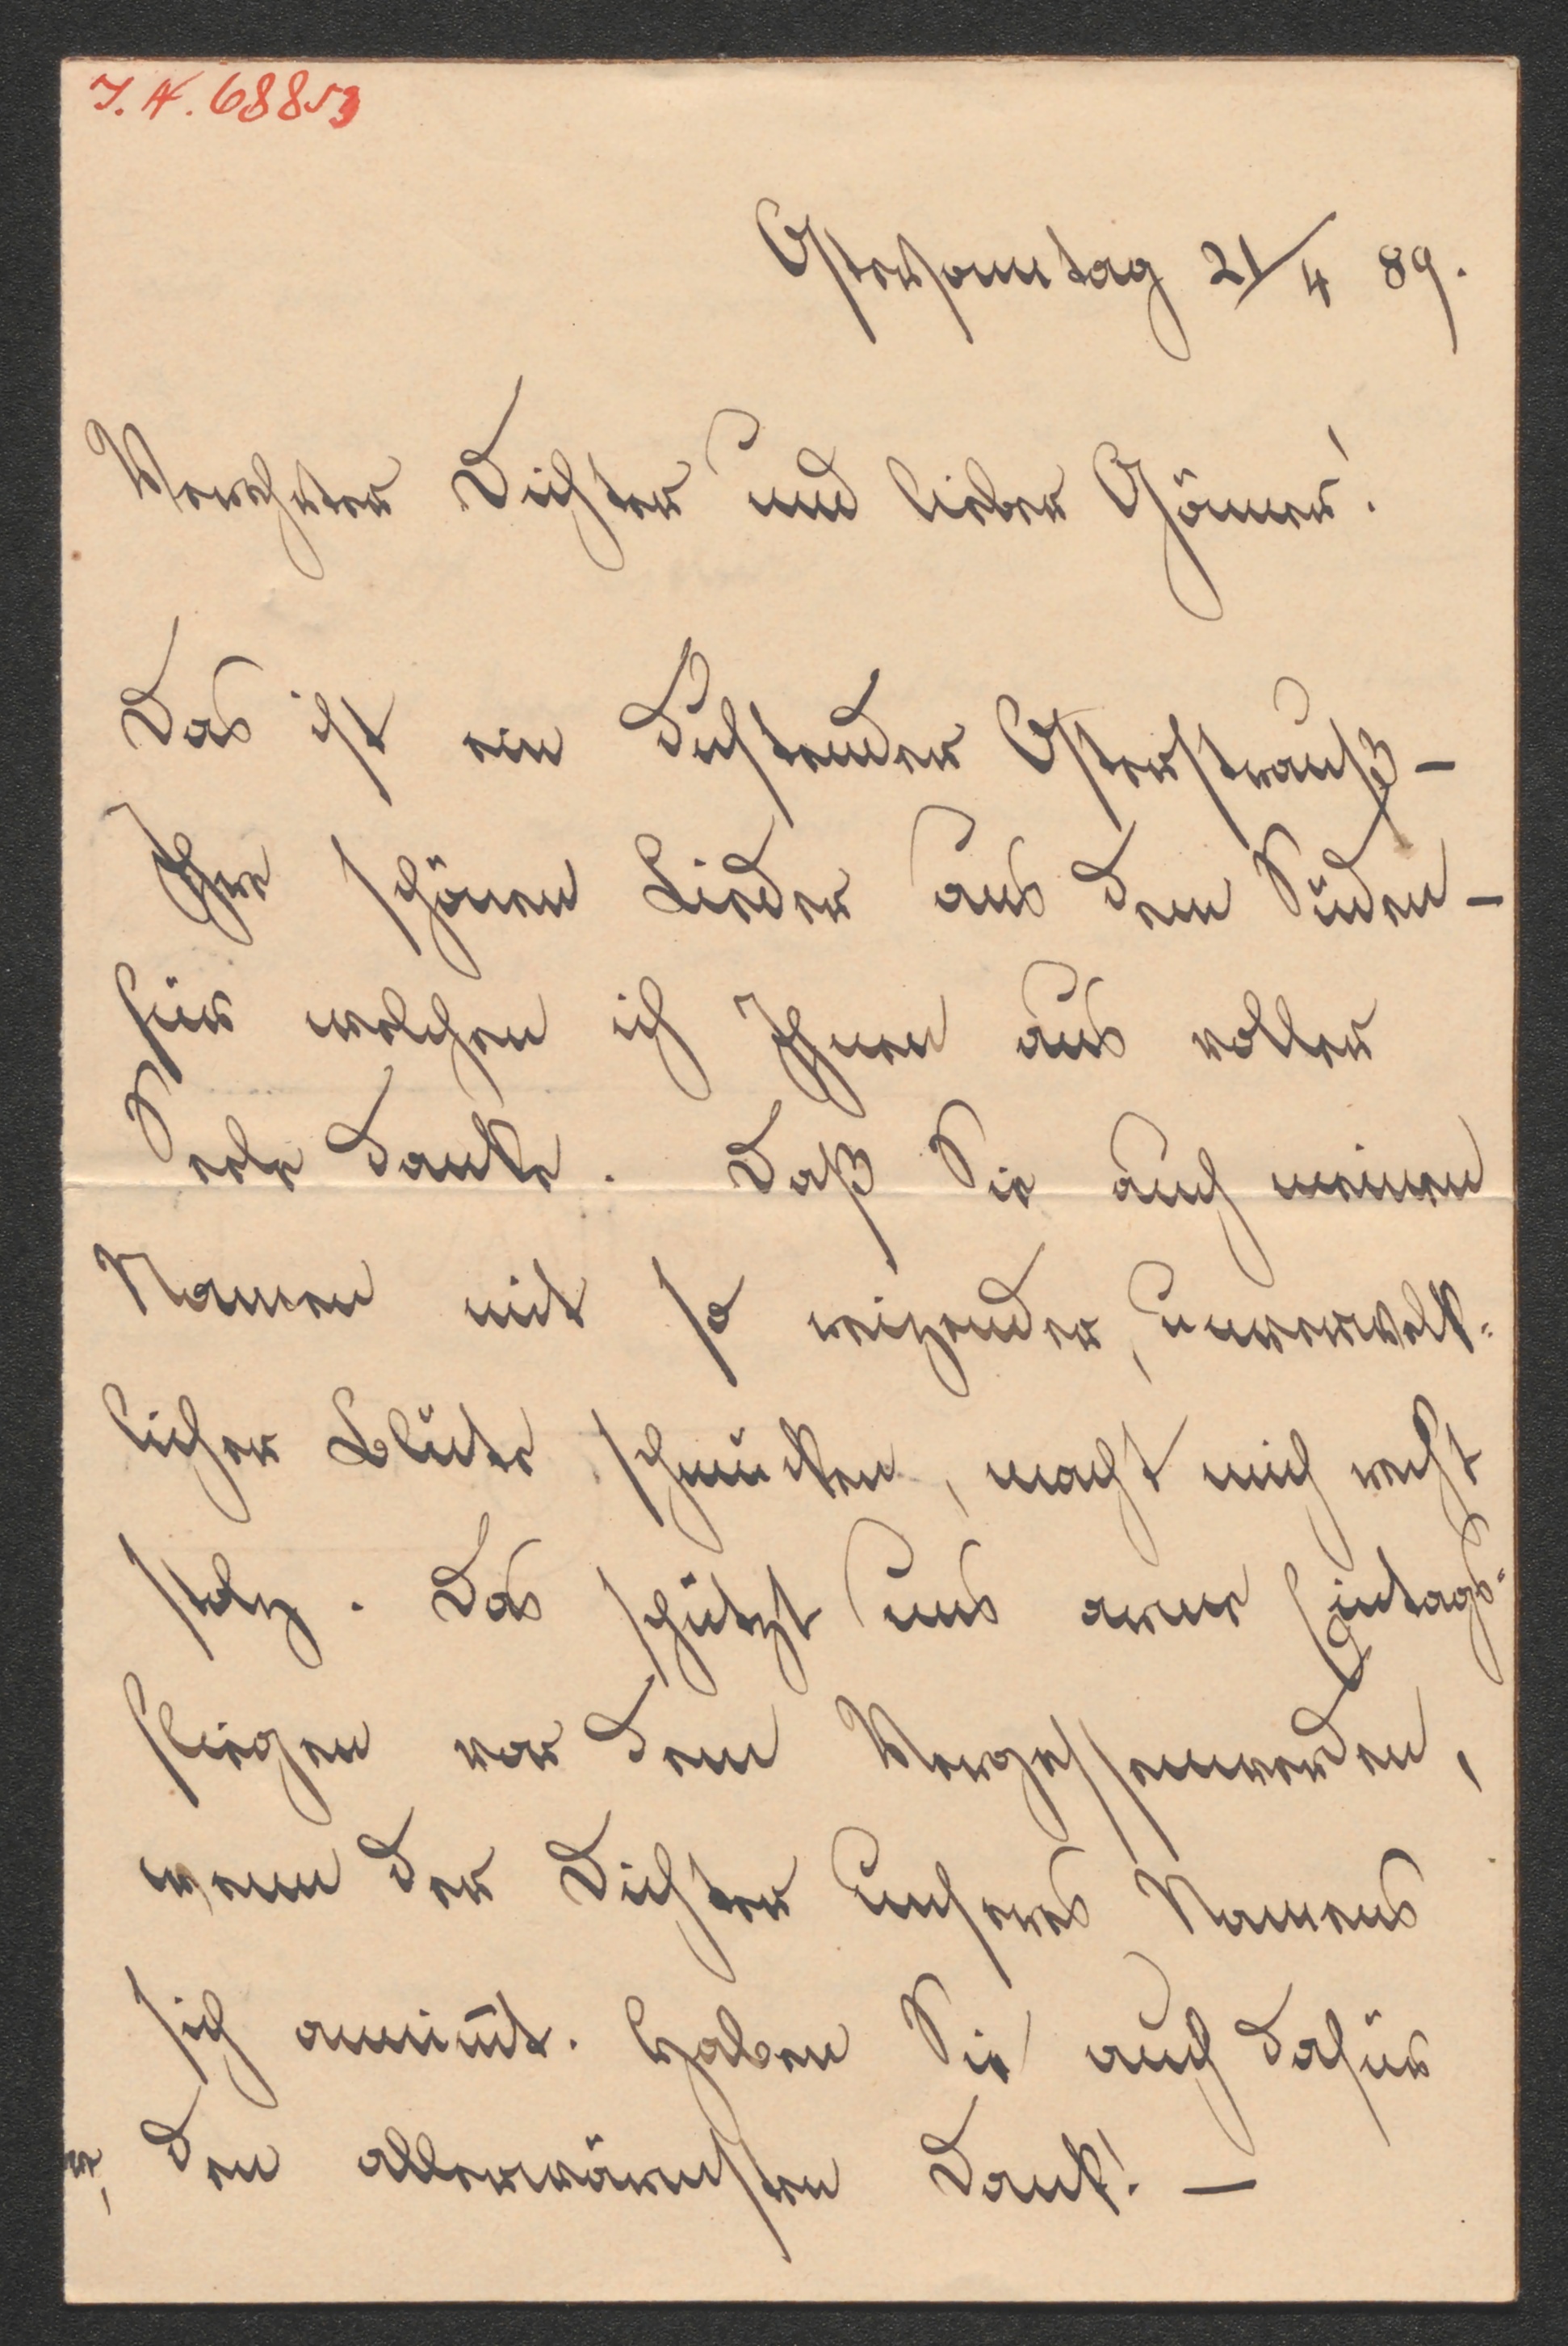 J. N. 68853
Ostersonntag 21/4 89.
Verehrter Dichter und lieber Gönner!
Das ist ein duftender Osterstrauß –
Ihre schönen Lieder aus dem Süden –
für welchen ich Ihnen aus voller
Seele danke. Daß Sie auch meinen
Namen mit so reizender, unverwelk-
licher Blüte schmücken, macht mich recht
stolz. Das schützt uns arme Eintags-
fliegen vor dem Vergessenwerden,
wenn der Dichter unseres Namens
sich annimmt. Haben Sie auch dafür
den allerwärmsten Dank! –